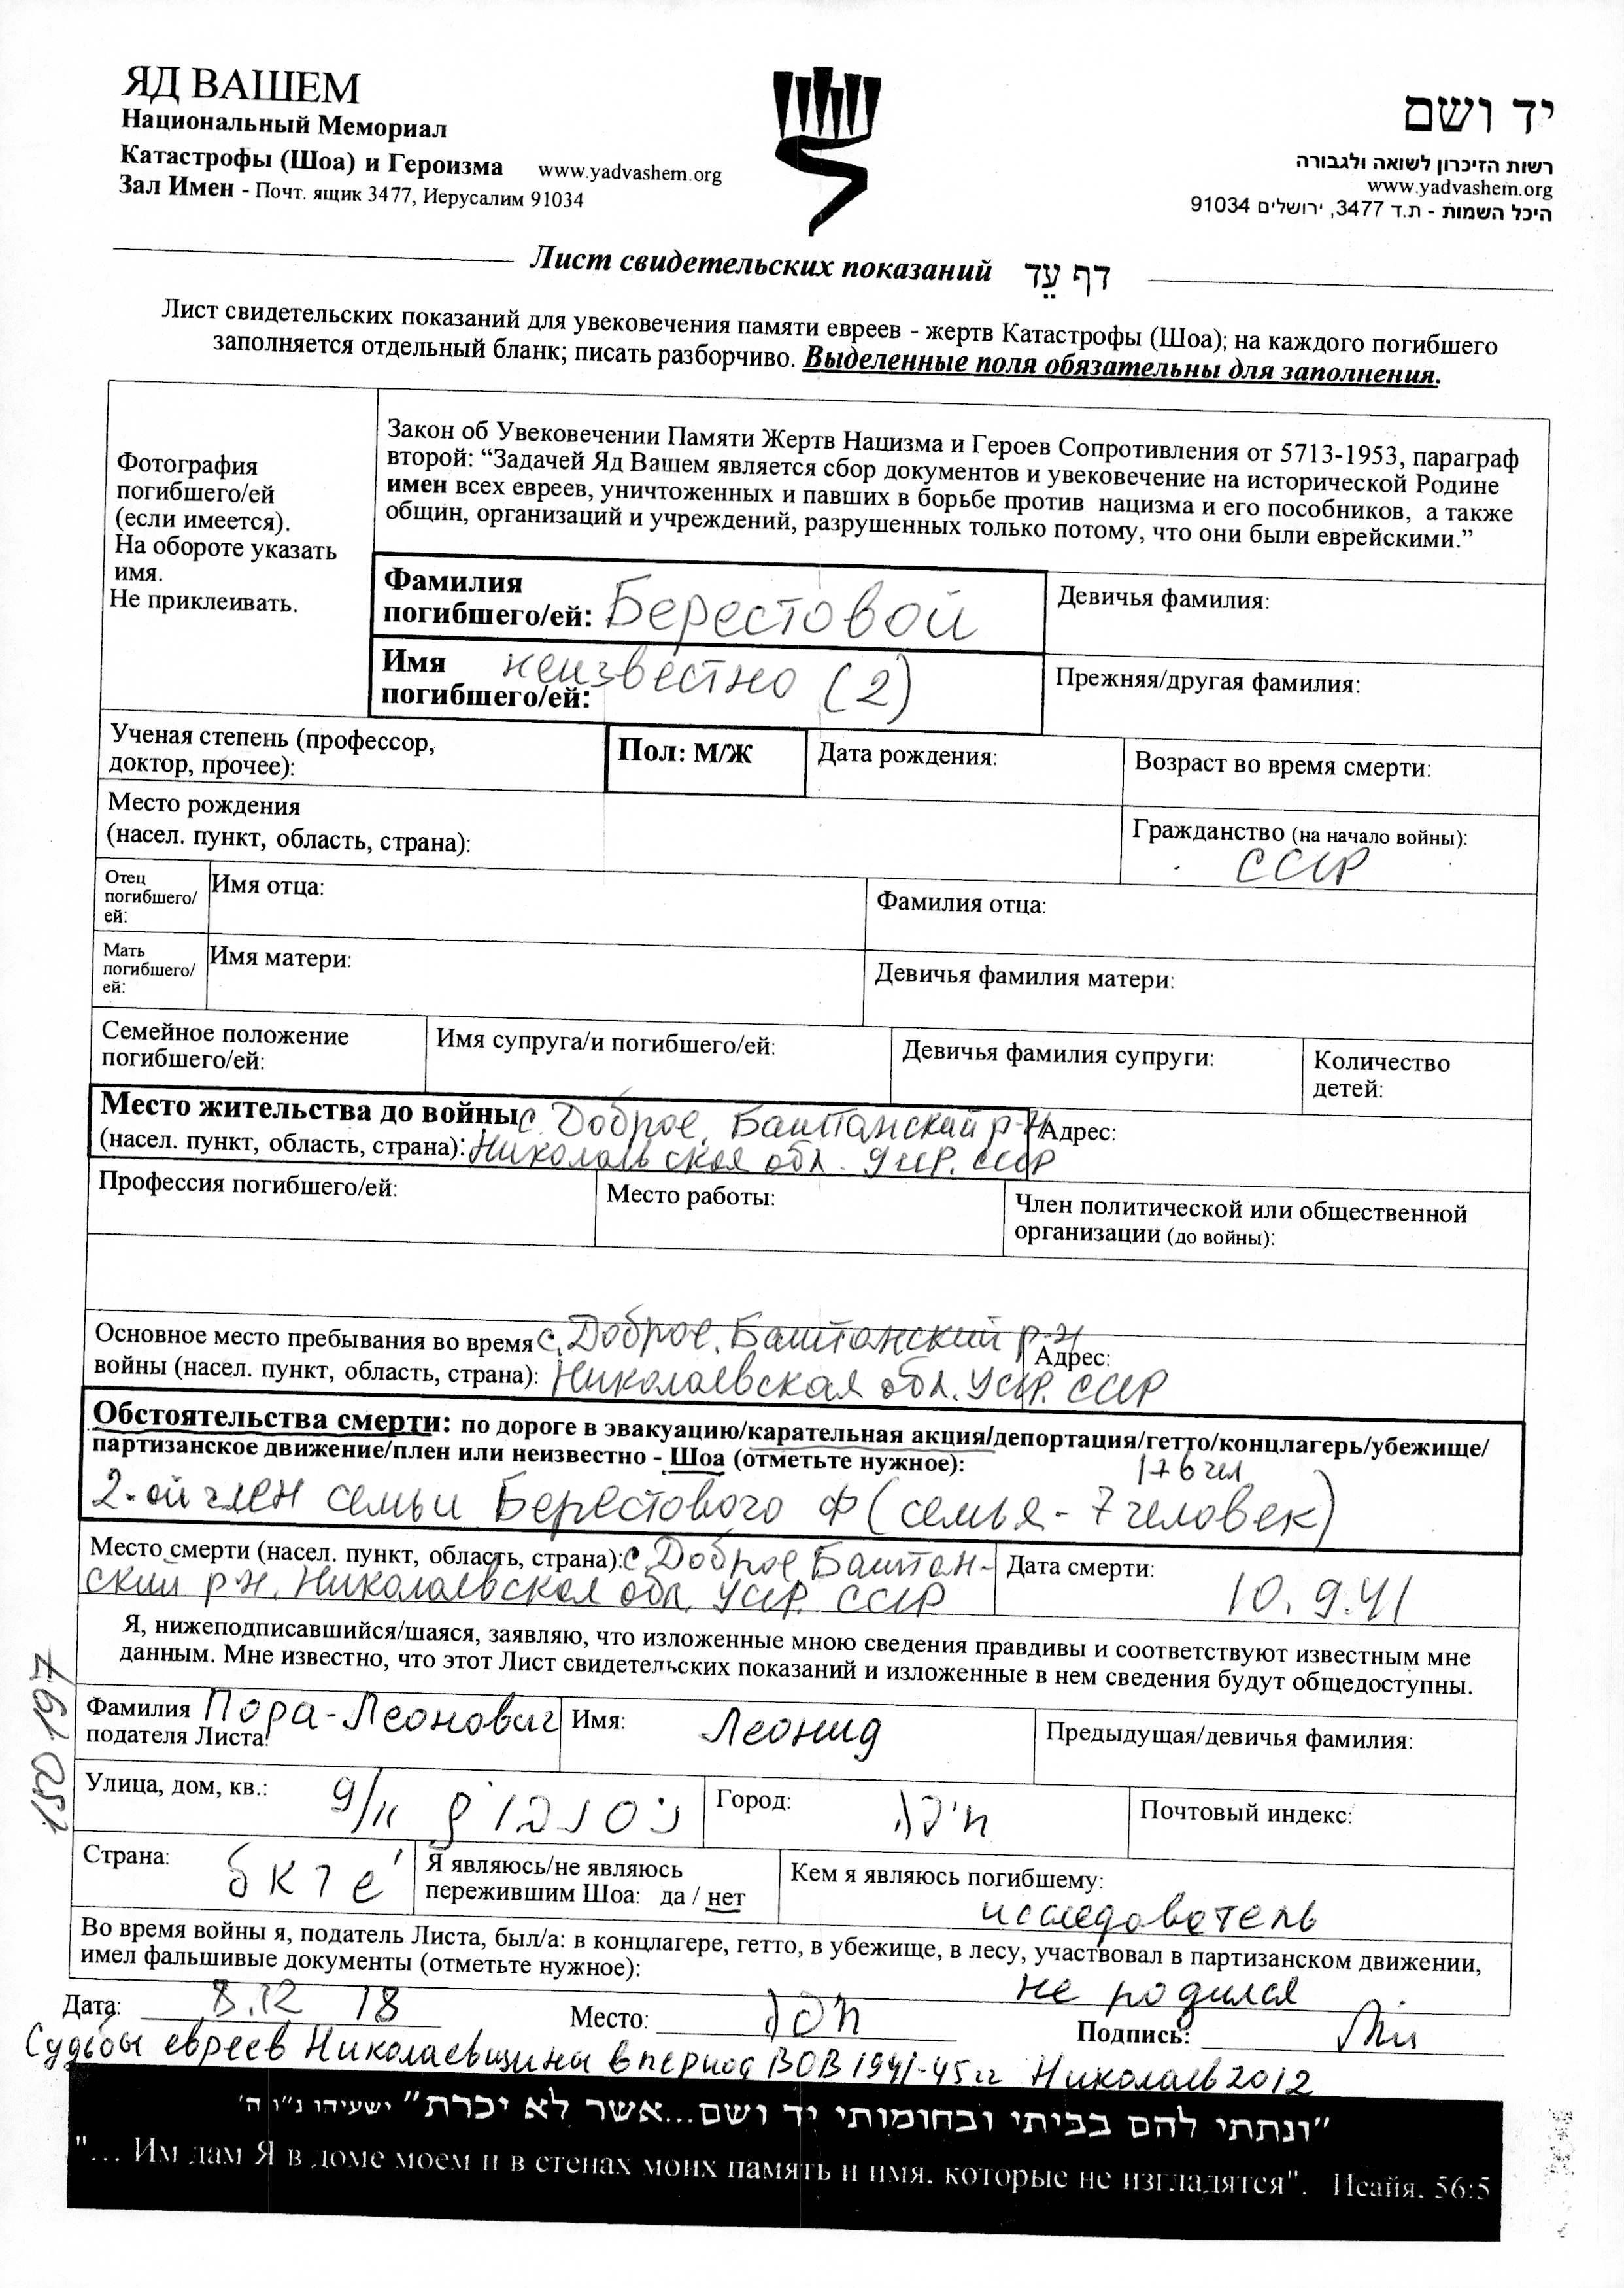 ЯД ВАШЕМ
Национальный Мемориал
Катастрофы (Шоа) и Героизма www.yadvashem.org
Зал Имен - Почт. ящик 3477, Иерусалим 91034
יד ושם
רשות הזיכרון לשואה ולגבורה
www.yadvashem.org
היכל השמות - ת.ד 3477, ירושלים 91034
Лист свидетельских показаний דף עֵד
Лист свидетельских показаний для увековечения памяти евреев - жертв Катастрофы (Шоа); на каждого погибшего
заполняется отдельный бланк; писать разборчиво. Выделенные поля обязательны для заполнения.
Фотография
погибшего/ей
(если имеется).
На обороте указать
имя.
Не приклеивать.
Закон об Увековечении Памяти Жертв Нацизма и Героев Сопротивления от 5713-1953, параграф
второй: “Задачей Яд Вашем является сбор документов и увековечение на исторической Родине
имен всех евреев, уничтоженных и павших в борьбе против нацизма и его пособников, а также
общин, организаций и учреждений, разрушенных только потому, что они были еврейскими.”
Фамилия
погибшего/ей: Берестовой
Девичья фамилия:
Имя неизвестно (2)
погибшего/ей:
Прежняя/другая фамилия:
Ученая степень (профессор,
доктор, прочее):
Пол: М/Ж
Дата рождения:
Возраст во время смерти:
Место рождения
(насел. пункт, область, страна):
Гражданство (на начало войны):
СССР
Отец
погибшего/
ей:
Имя отца:
Фамилия отца:
Мать
погибшего/
ей:
Имя матери:
Девичья фамилия матери:
Семейное положение
погибшего/ей:
Имя супруга/и погибшего/ей:
Девичья фамилия супруги:
Количество
детей:
Место жительства до войны с. Доброе, Баштанский р-н
(насел. пункт, область, страна): Николаевская обл. УССР. СССР
Адрес:
Профессия погибшего/ей:
Место работы:
Член политической или общественной
организации (до войны):
Основное место пребывания во время с. Доброе, Баштанский р-н
войны (насел. пункт, область, страна): Николаевская обл. УССР. СССР
Адрес:
Обстоятельства смерти: по дороге в эвакуацию/карательная акция/депортация/гетто/концлагерь/убежище/
партизанское движение/плен или неизвестно - Шоа (отметьте нужное): 176 чел
2-ой член семьи Берестового Ф (семья - 7 человек)
Место смерти (насел. пункт, область, страна): с. Доброе Баштан-
ский р-н. Николаевская обл. УССР. СССР
Дата смерти:
10.9.41
Я, нижеподписавшийся/шаяся, заявляю, что изложенные мною сведения правдивы и соответствуют известным мне
данным. Мне известно, что этот Лист свидетельских показаний и изложенные в нем сведения будут общедоступны.
Фамилия Пора-Леонович
податели Листа:
Имя: Леонид
Предыдущая/девичья фамилия:
Улица, дом, кв.: 9/11
Город: חיפה
Почтовый индекс:
Страна:
Я являюсь/не являюсь
пережившим Шоа: да / нет
Кем я являюсь погибшему:
исследователь
Во время войны я, податель Листа, был/а: в концлагере, гетто, в убежище, в лесу, участвовал в партизанском движении,
имел фальшивые документы (отметьте нужное): не родился
Дата: 8.12 18 Место: Подпись:
Судьбы евреев Николаевщины в период ВОВ 1941-45 гг Николаев 2012
"ונתתי להם בביתי ובחומותי יד ושם...אשר לא יכרת" ישעיהו נ"ו ה'
"... Им дам Я в доме моем и в стенах моих память и имя. которые не изгладятся". Исайя. 56:5